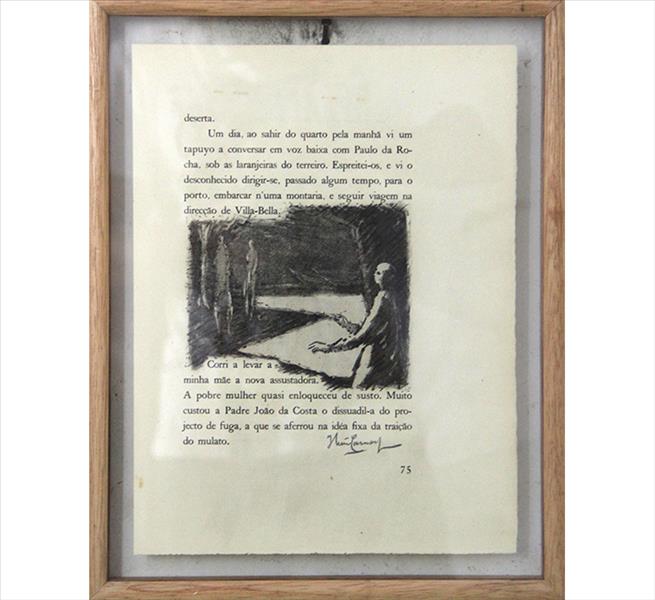 deserta.
Um dia, ao sahir do quarto pela manhã vi um
tapuyo a conversar em voz baixa com Paulo da Ro-
cha, sob as laranjeiras do terreiro. Espreitei-os, e vi o
desconhecido dirigir-se, passado algum tempo, para o
porto, embarcar n'uma montaria, e seguir viagem na
direcção de Villa-Bella.
Corri a levar a
minha mãe a nova assustadora.
A pobre mulher quasi enloqueceu de susto. Muito
custou a Padre João da Costa o dissuadil-a do pro-
jecto de fuga, a que se aferrou na idéa fixa da traição
do mulato.
75